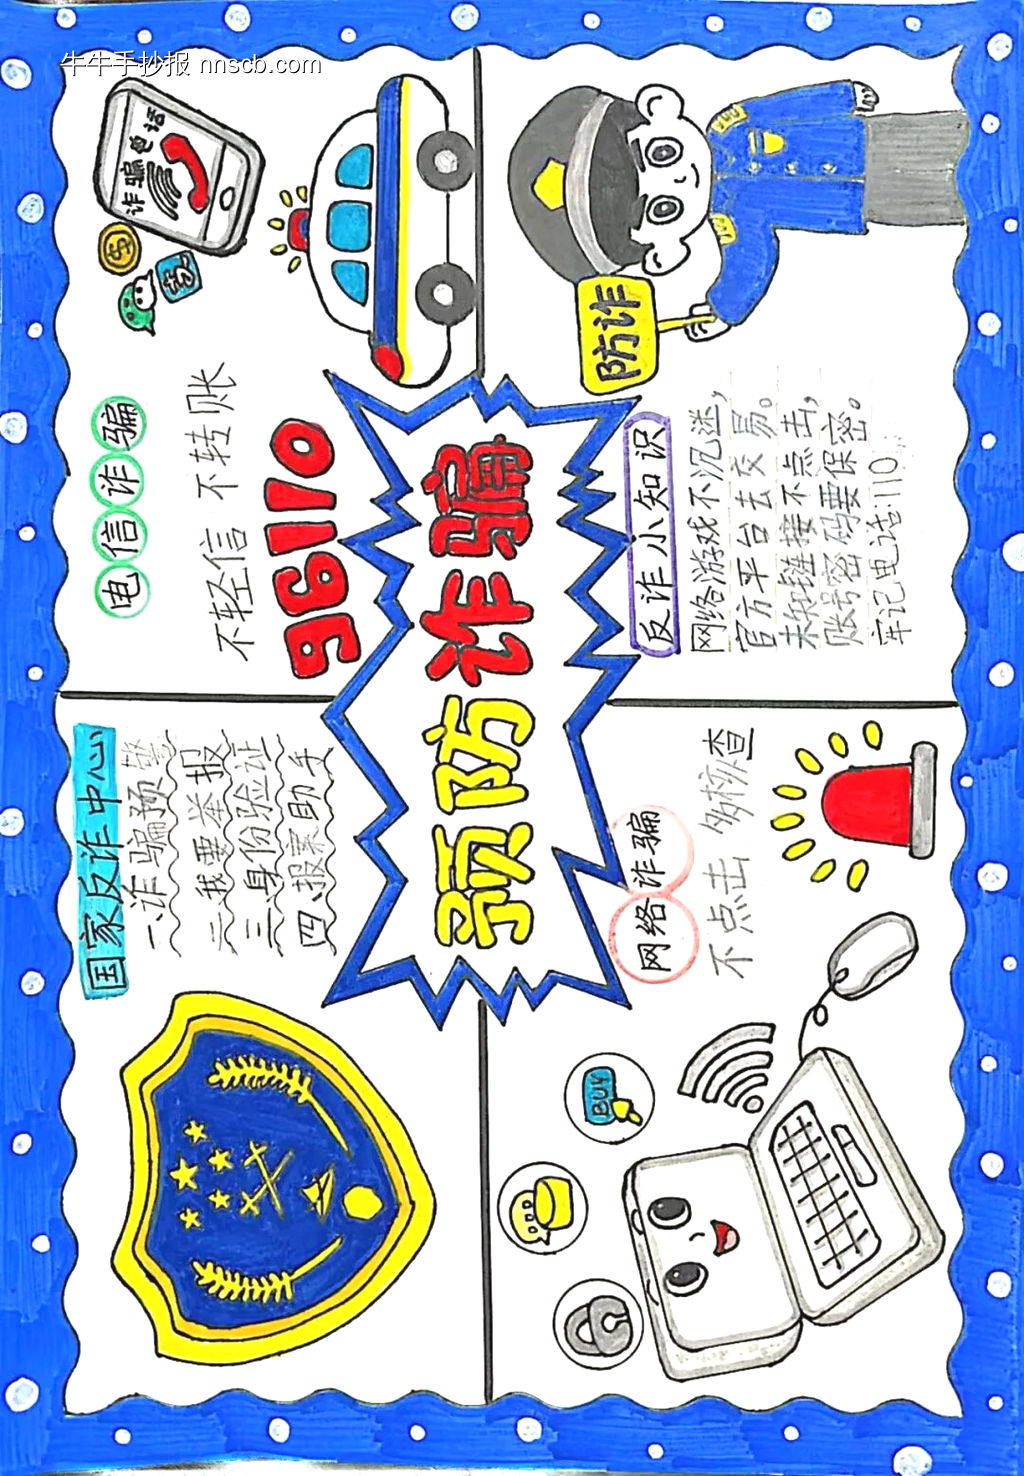 牛牛手抄报 nnscb.com
国家反诈中心
一.诈骗预警
二.我要举报
三.身份验证
四.报案助手
电信诈骗
不轻信 不转账
96110
诈骗电话
$
预防诈骗
网络诈骗
不点击 多核查
BUY
反诈小知识
网络游戏不沉迷，
官方平台去交易。
未知链接不点击，
账号密码要保密。
牢记电话:110。
防诈